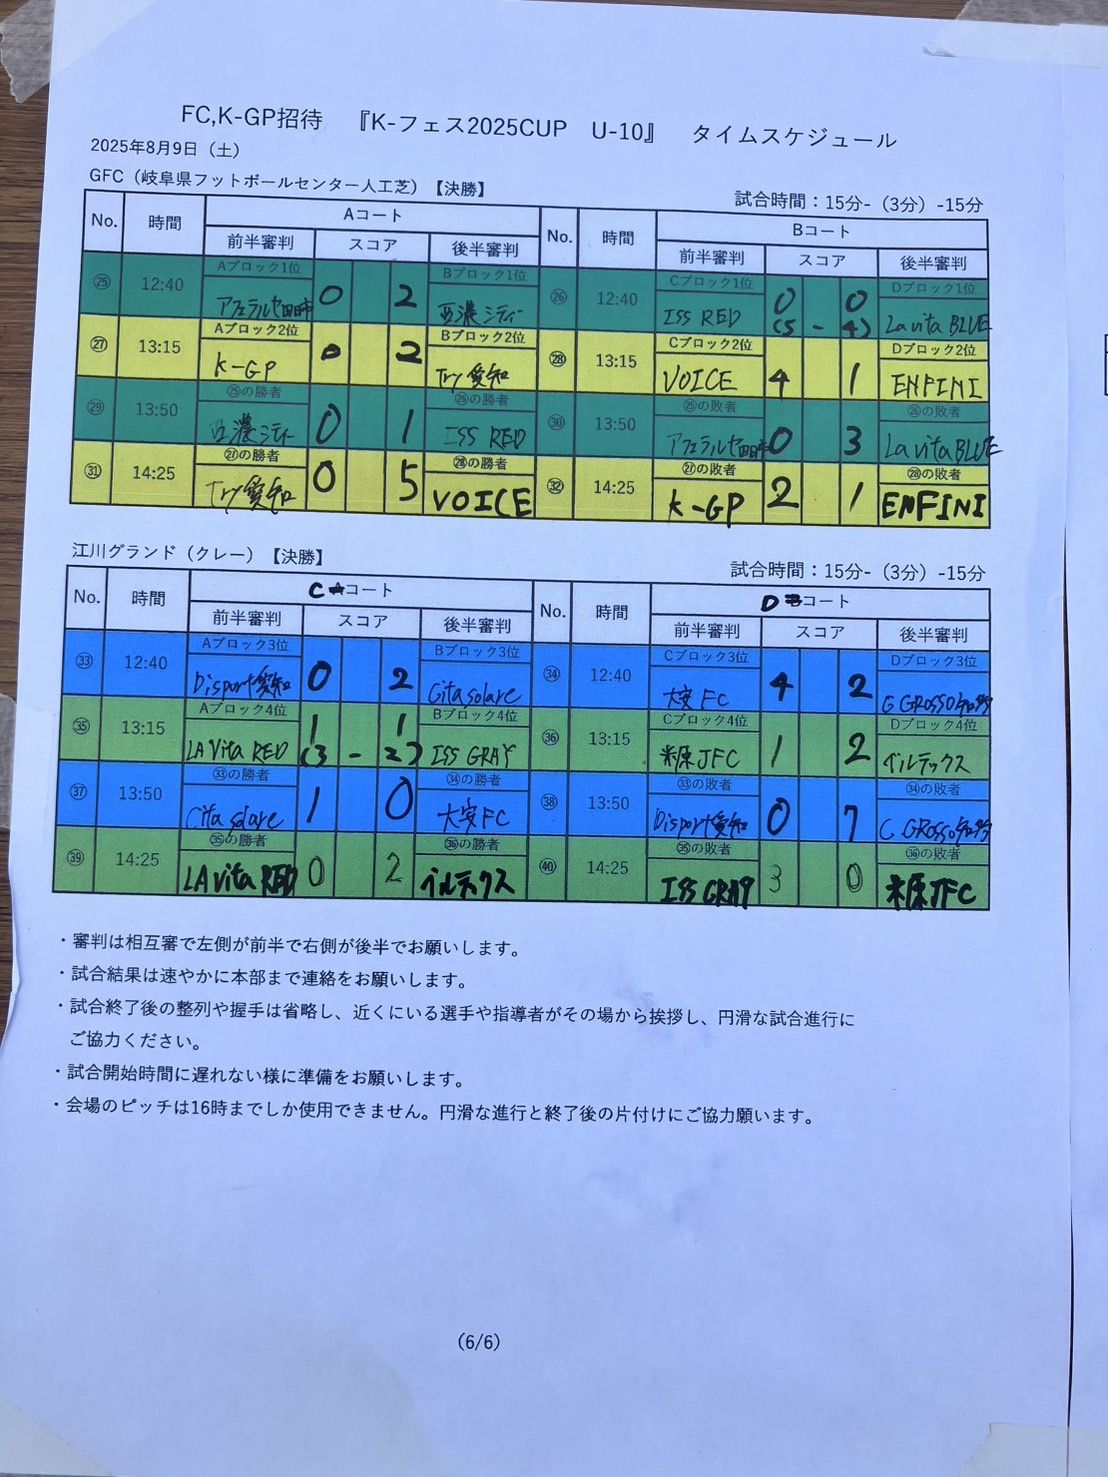 FC,K-GP招待 『K-フェス2025CUP U-10』 タイムスケジュール
2025年8月9日（土）
GFC（岐阜県フットボールセンター人工芝）【決勝】 試合時間：15分-（3分）-15分
No. 時間 Aコート No. 時間 Bコート
前半審判 スコア 後半審判 前半審判 スコア 後半審判
Aブロック1位 Bブロック1位 Cブロック1位 Dブロック1位
㉕ 12:40 0 2 西濃シティー ㉖ 12:40 ISS RED 0 0 La vita BLUE
(5 - 4)
Aブロック2位 Bブロック2位 Cブロック2位 Dブロック2位
㉗ 13:15 K-GP 0 2 Try愛知 ㉘ 13:15 VOICE 4 1 ENFINI
㉕の勝者 ㉖の勝者 ㉕の敗者 ㉖の敗者
㉙ 13:50 西濃シティー 0 1 ISS RED ㉚ 13:50 0 3 La vita BLUE
㉗の勝者 ㉘の勝者 ㉗の敗者 ㉘の敗者
㉛ 14:25 Try愛知 0 5 VOICE ㉜ 14:25 K-GP 2 1 ENFINI
江川グランド（クレー）【決勝】 試合時間：15分-（3分）-15分
No. 時間 C コート No. 時間 D コート
前半審判 スコア 後半審判 前半審判 スコア 後半審判
Aブロック3位 Bブロック3位 Cブロック3位 Dブロック3位
㉝ 12:40 Disport愛知 0 2 Cita solare ㉞ 12:40 大安FC 4 2 G GROSSO知多
Aブロック4位 Bブロック4位 Cブロック4位 Dブロック4位
㉟ 13:15 LA Vita RED 1 1 ISS GRAY ㊱ 13:15 米原JFC 1 2 ベルテックス
(3 - 2)
㉝の勝者 ㉞の勝者 ㉝の敗者 ㉞の敗者
㊲ 13:50 Cita solare 1 0 大安FC ㊳ 13:50 Disport愛知 0 7 C GROSSO知多
㉟の勝者 ㊱の勝者 ㉟の敗者 ㊱の敗者
㊴ 14:25 LA vita RED 0 2 ベルテックス ㊵ 14:25 ISS GRAY 3 0 米原JFC
・審判は相互審で左側が前半で右側が後半でお願いします。
・試合結果は速やかに本部まで連絡をお願いします。
・試合終了後の整列や握手は省略し、近くにいる選手や指導者がその場から挨拶し、円滑な試合進行に
ご協力ください。
・試合開始時間に遅れない様に準備をお願いします。
・会場のピッチは16時までしか使用できません。円滑な進行と終了後の片付けにご協力願います。
(6/6)